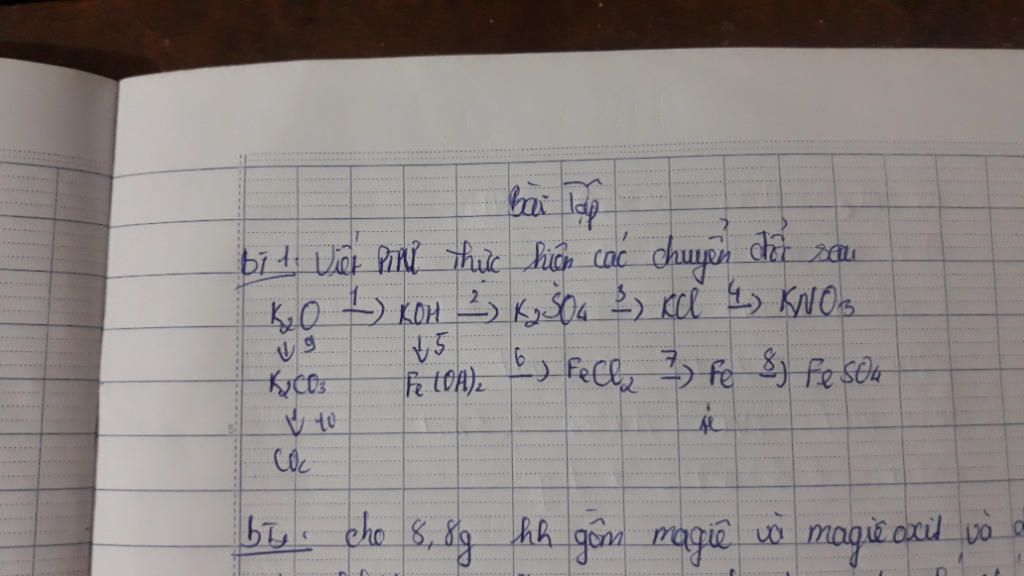 Bài Tập
BT1: Viết PTHH thực hiện các chuyển đổi sau
K₂O 1→ KOH 2→ K₂SO₄ 3→ KCl 4→ KNO₃
↓9 ↓5
K₂CO₃ Fe(OH)₂ 6→ FeCl₂ 7→ Fe 8→ FeSO₄
↓10
CO₂
cho 8,8g hh gồm magiê và magiê oxit và